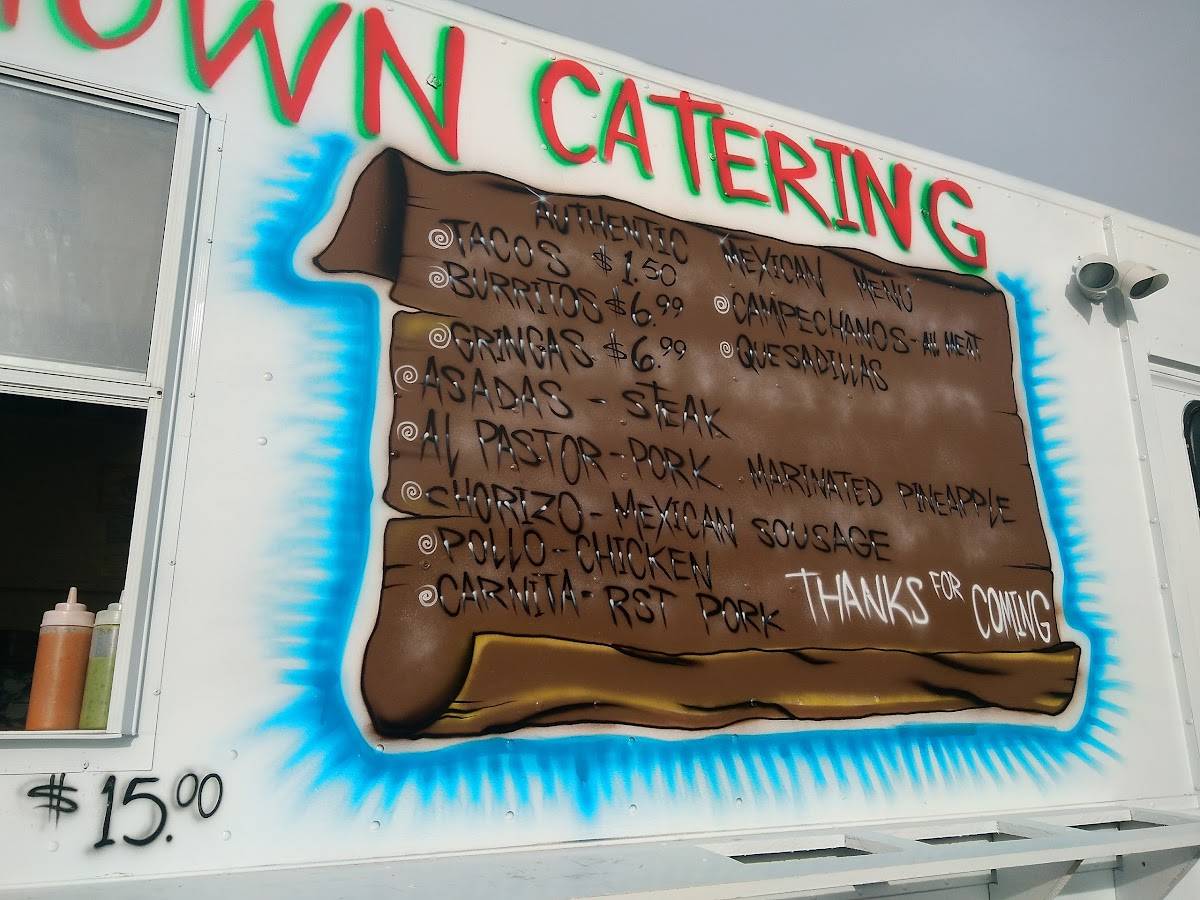 OWN CATERING
AUTHENTIC MEXICAN MENU
TACOS $1.50
BURRITOS $6.99
GRINGAS $6.99
CAMPECHANOS - All MEAT
QUESADILLAS
ASADAS - STEAK
Al PASTOR - PORK MARINATED PINEAPPLE
CHORIZO - MEXICAN SOUSAGE
POLLO - CHICKEN
CARNITA - RST PORK
THANKS FOR COMING
$15.00